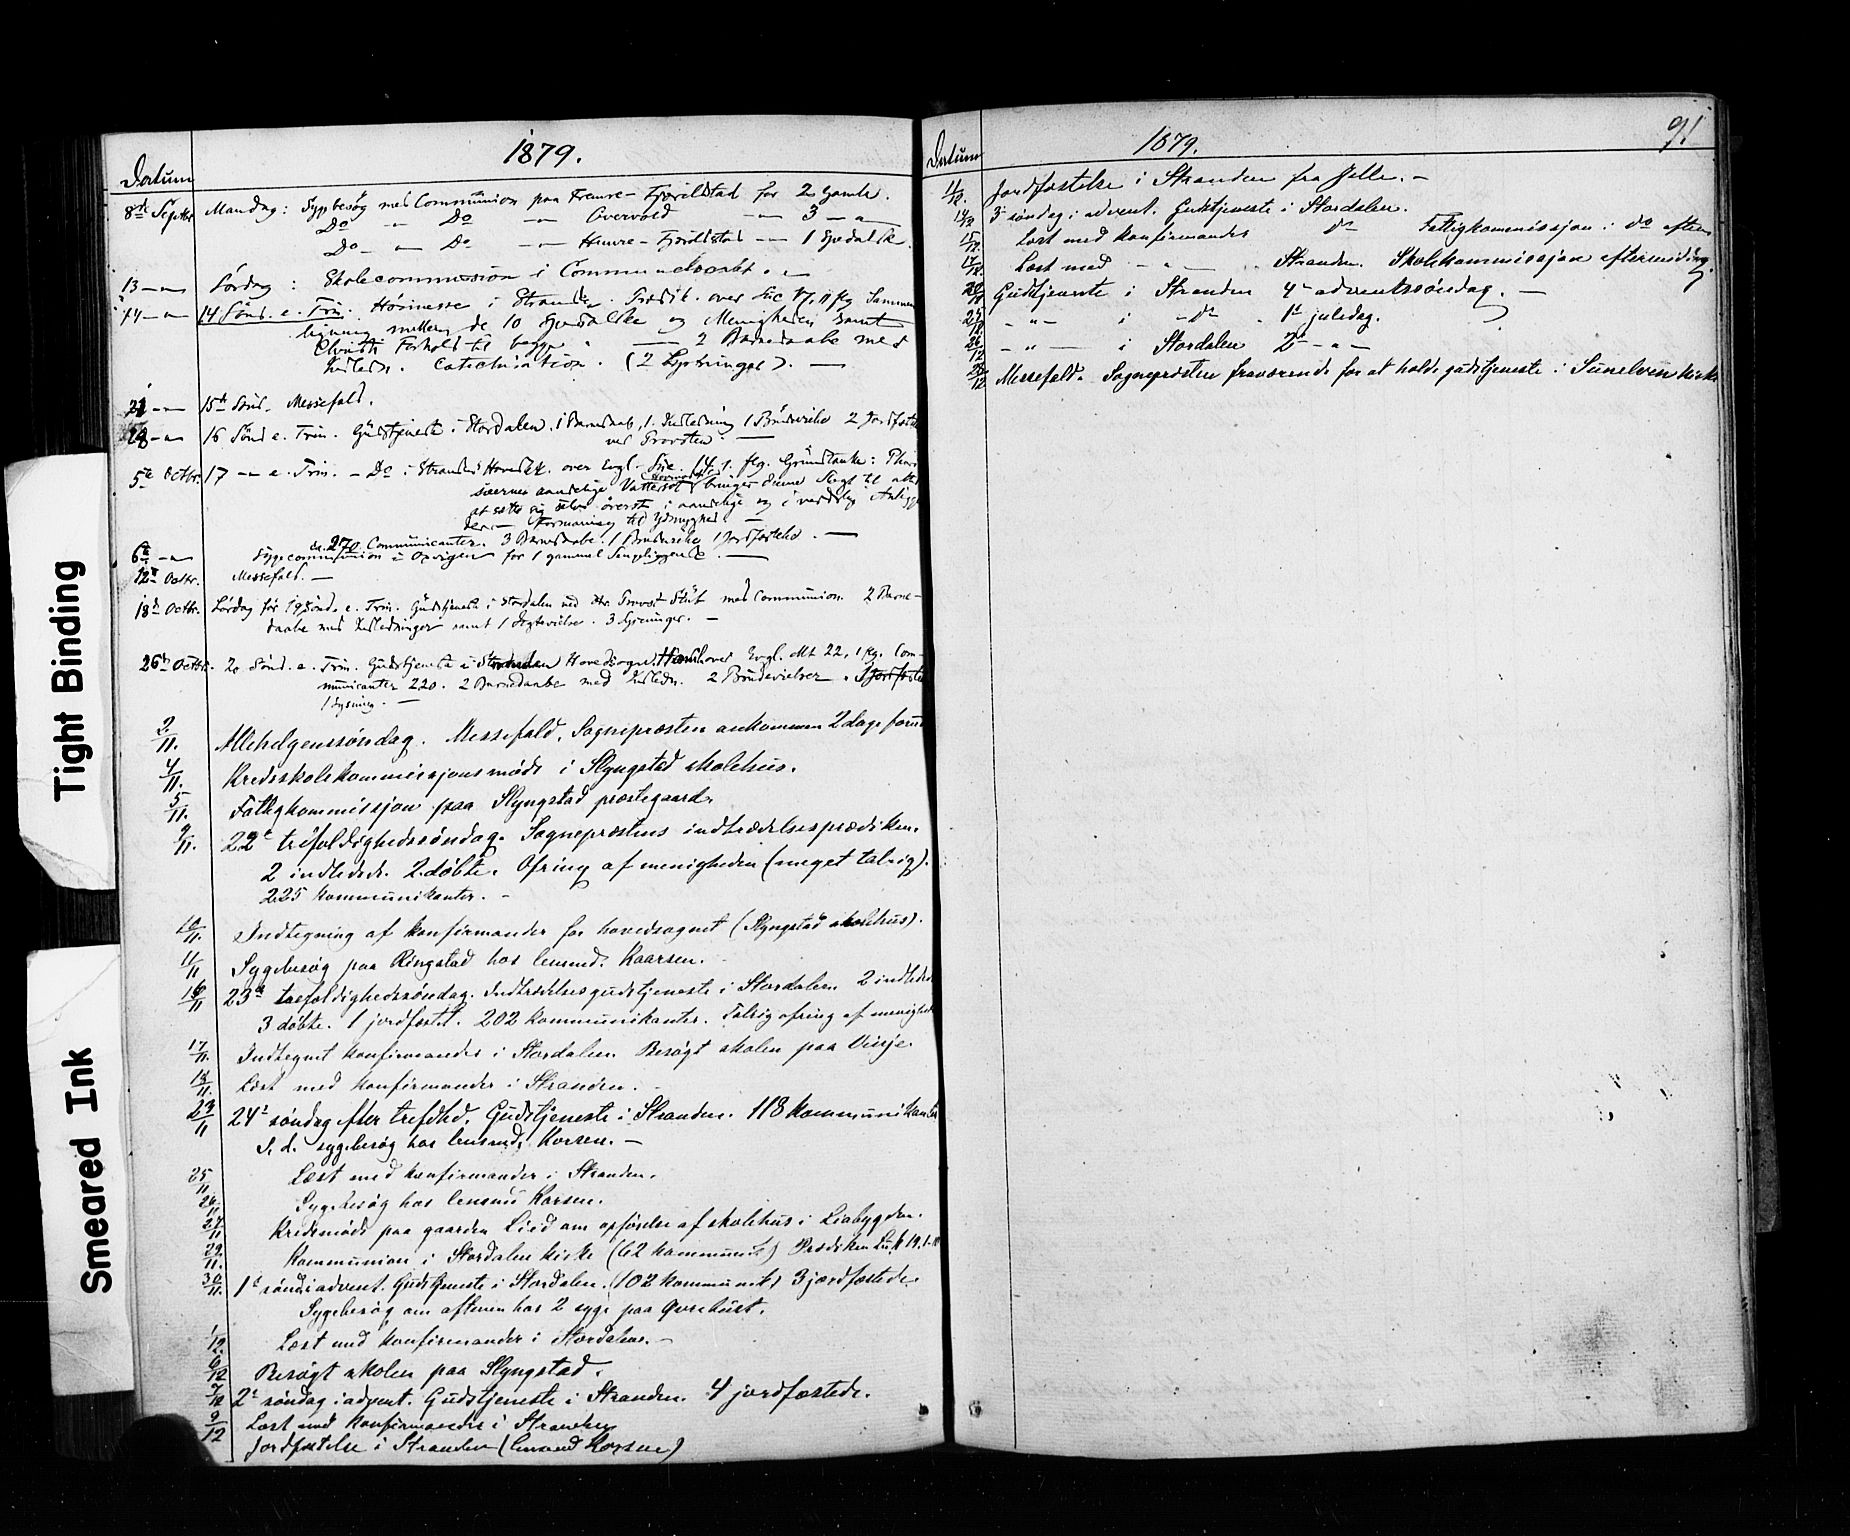 Tight Binding
Smeared Ink
1879.
Datum
8de Septbr Mandag: Sygebesøg med Communion paa Fremre-Fjørdstad for 2 Gamle.
Do - Do - Overvold - 3 -
Do - Do - - Fjørdstad - 1 Spedalsk.
13 - Lørdag: Skolecommission i Communelocalet.
14 - 14 Sönd. e. Trin. Høimesse i Stranda. Prædik. over Luc 17, 11 flg Sammen
ligning mellem de 10 Spedalske og Menigheden samt
Christi Forhold til begge - 2 Barnedaabe med
Indledn. Catechisation. (2 Lysninger).
21 - 15de Sönd. Messefald.
28 - 16 Sönd e. Trin. Gudstjeneste i Stordalen. 1 Barnedaab, 1. Indledning 1 Brudevielse 2 Jordfæst
ved Provsten.
5te Octbr. 17 - e. Trin. - Do i Strandens Hovedk. over Evgl. Luc. 14, 1. flg. Grundtanke: Phari
sæernes aandelige Vattersot bringer denne Slægt til altid
at sætte sig selv øverst i aandelige og i verdslige Anligg
der. - Formaning til Ydmyghed.
ca. 270 Communicanter. 3 Barnedaabe. 1 Brudevielse 1 Jordfæstelse.
6te - Sygecommunion i Opvigen for 1 gammel Sengeliggende.
12te Octbr. Messefald.
18de Octbr. Lørdag før 19 Sönd. e. Trin. Gudstjeneste i Stordalen ved Hr. Provst Stub med Communion 2 Barne-
daabe med Indledninger samt 1 Ægtevielse. 3 Lysninger.
26de Octbr. 20 Sönd. e. Trin. Gudstjeneste i Stranden Hovedsogn. over Evgl. Mt 22, 1 flg. Com-
municanter 220. 2 Barnedaabe med Indledn. 2 Brudevielser.
1 Lysning.
2/11. Allehelgenssøndag. Messefald. Sognepræsten ankommen 2 dage forud
4/11. Kredsskolekommissjonsmøde i Slyngstad skolehus.
5/11. Fattigkommissjon paa Slyngstad præstegaard.
9/11. 22de trefoldighedssøndag. Sognepræstens indtrædelsesprædiken.
2 indledede. 2 døbte. Ofring af menigheden (meget talrig).
225 kommunikanter.
10/11. Indtegning af konfirmander for hovedsognet (Slyngstad skolehus).
11/11 Sygebesøg paa Ringstad hos lensmd. Kaarsen.
16/11 23de trefoldighedssøndag. Indtrædelsesgudstjeneste i Stordalen 2 indledede
3 døbte. 1 jordfæstet. 202 kommunikanter. Talrig ofring af menighed
17/11. Indtegnet konfirmander i Stordalen. Besøgt skolen paa Vinje.
18/11. Læst med konfirmander i Stranden.
23/11 24de søndag efter trefdhd. Gudstjeneste i Stranden. 118 kommunikanter
S. d. sygebesøg hos lensmd. Korsen.
25/11 Læst med konfirmander i Stranden.
26/11 Sygebesøg hos lensmd Korsen.
27/11 Kredsmøde paa gaarden Lied om opførelse af skolehus i Liabygden.
29/11. Kommunion i Stordalen kirke (62 kommunik) Prædiken Luk 19. 1-10
30/11. 1ste sønd i advent. Gudstjeneste i Stordalen. (102 kommunik) 3 jordfæstede.
Sygebesøg om aftenen hos 2 syge paa Øvrehust.
1/12. Læst med konfirmander i Stordalen.
6/12 Besøgt skolen paa Slyngstad.
7/12 2den søndag i advent. Gudstjeneste i Stranden. 4 jordfæstede.
9/12 Læst med konfirmander i Stranden
Jordfæstelse i Stranden (lensmand Korsen)
91
1879.
Datum
11/12. Jordfæstelse i Stranden fra Jelle.
14/12 3die søndag i advent. Gudstjeneste i Stordalen.
15/12. Læst med konfirmander do Fattigkommissjon i do eftm
17/12. Læst med - " - Stranden. Skolekommissjon eftermiddag.
Gudstjeneste i Stranden 4de adventssøndag.
25/12. - " - i - do - 1ste juledag.
26/12 - " - i Stordalen 2den - " -
28/12 Messefald. Sognepræsten fraværende for at holde gudstjeneste i Sunelven kirke